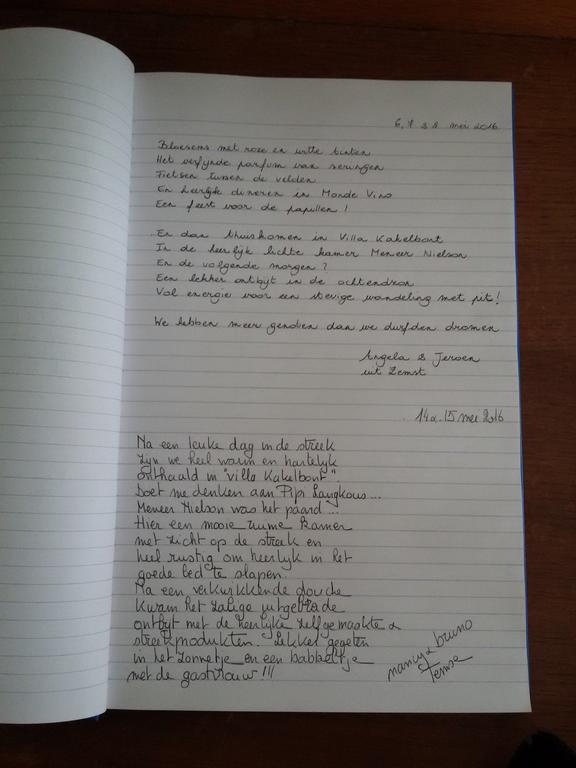 6, 7 & 8 mei 2016
Bloesems met roze en witte tinten
Het verfijnde parfum van seringen
Fietsen tussen de velden
En heerlijk dineren in Monde Vino
Een feest voor de papillen !
En dan thuiskomen in Villa Kakelbont
In de heerlijk lichte kamer Meneer Nielson
En de volgende morgen ?
Een lekker ontbijt in de ochtendzon
Vol energie voor een stevige wandeling met pit !
We hebben meer genoten dan we durfden dromen
Angela & Jeroen
uit Zemst
14 & 15 mei 2016
Na een leuke dag in de streek
zijn we heel warm en hartelijk
onthaald in "Villa Kakelbont".
Doet me denken aan Pipi Langkous ...
Meneer Nielson was het paard ...
Hier een mooie ruime kamer
met zicht op de streek en
heel rustig om heerlijk in het
goede bed te slapen.
Na een verkwikkende douche
kwam het zalige uitgebreide
ontbyt met de heerlijke zelfgemaakte &
streekprodukten. Lekker gegeten
in het zonnetje en een babbeltje
met de gastvrouw !!!
nancy & bruno
Temse